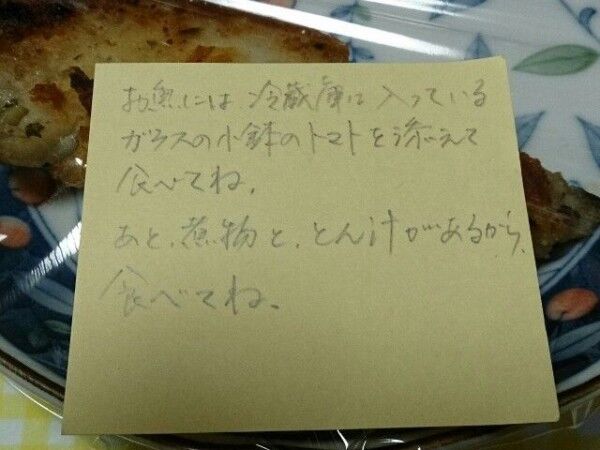 お魚には、冷蔵庫に入っている
ガラスの小鉢のトマトを添えて
食べてね。
あと、煮物と、とん汁があるから、
食べてね。